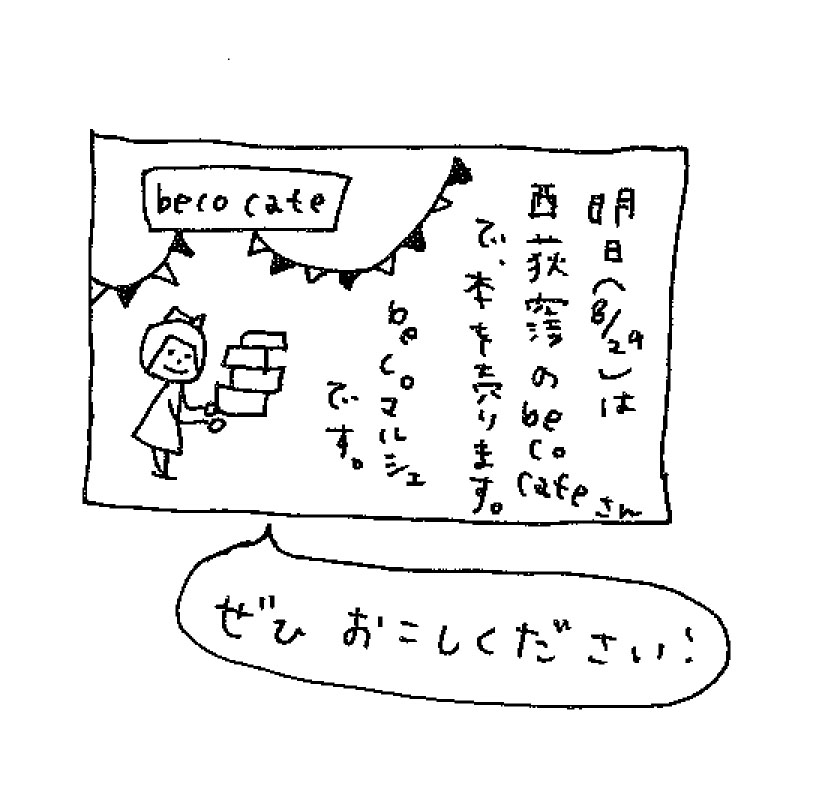 beco cafe
明日(8/29)は
西荻窪のbeco cafeさん
で、本を売ります。
becoマルシェ
です。
ぜひ おこしください!